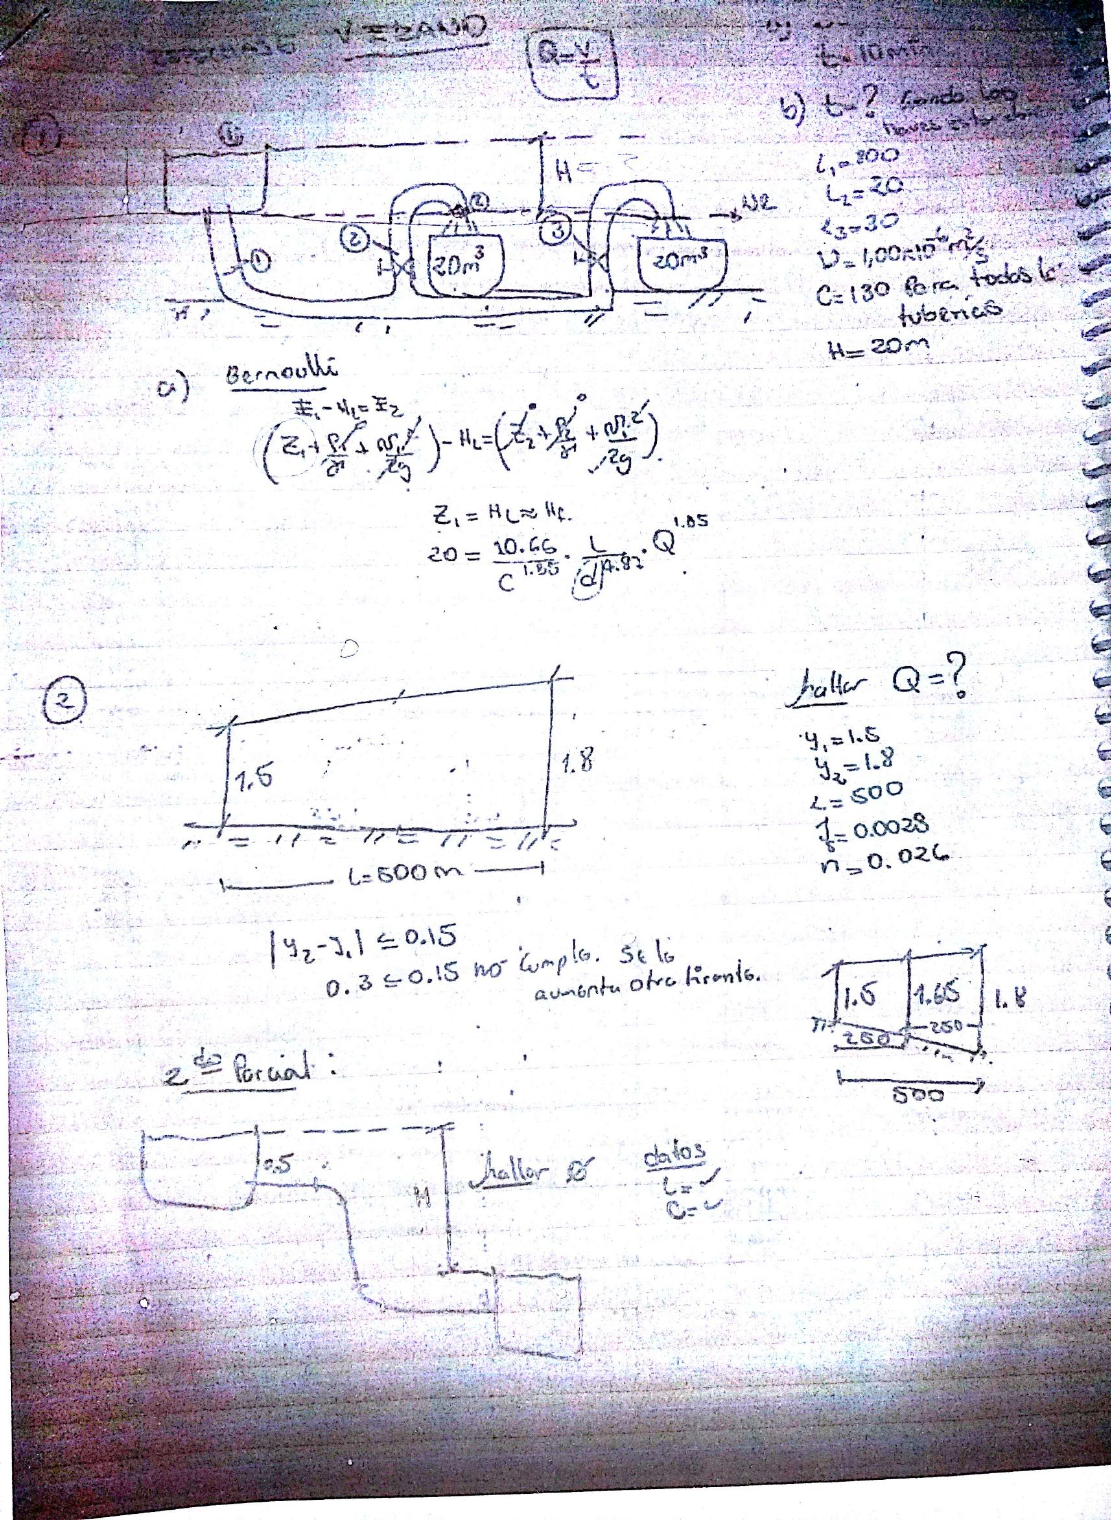 VERANO
Q=V/t
t=10min
b) t=? Cuando las
llaves estan
①
①
H=?
L₁=800
L₂=20
L₃=30
υ=1,00x10⁻⁶ m²/s
C=130 Para todas la
tuberias
H=20m
②
NR
②
③
①
20m³
20m³
a) Bernoulli
E₁-HL=E₂
(Z₁+P₁/γ+V₁²/2g)-HL=(Z₂+P₂/γ+V₂²/2g)
Z₁=HL≈Hf.
20=10.66/C^1.85 · L/(d)^4.87 · Q^1.85
②
hallar Q=?
1.5
1.8
y₁=1.5
y₂=1.8
L=500
S=0.0028
n=0.026
L=500m
|y₂-y₁|≤0.15
0.3≤0.15 no cumple. Se le
aumenta otro tirante.
1.5
1.65
1.8
250
250
500
2do Parcial:
0.5
H
hallar Ø
datos
L=✓
C=✓